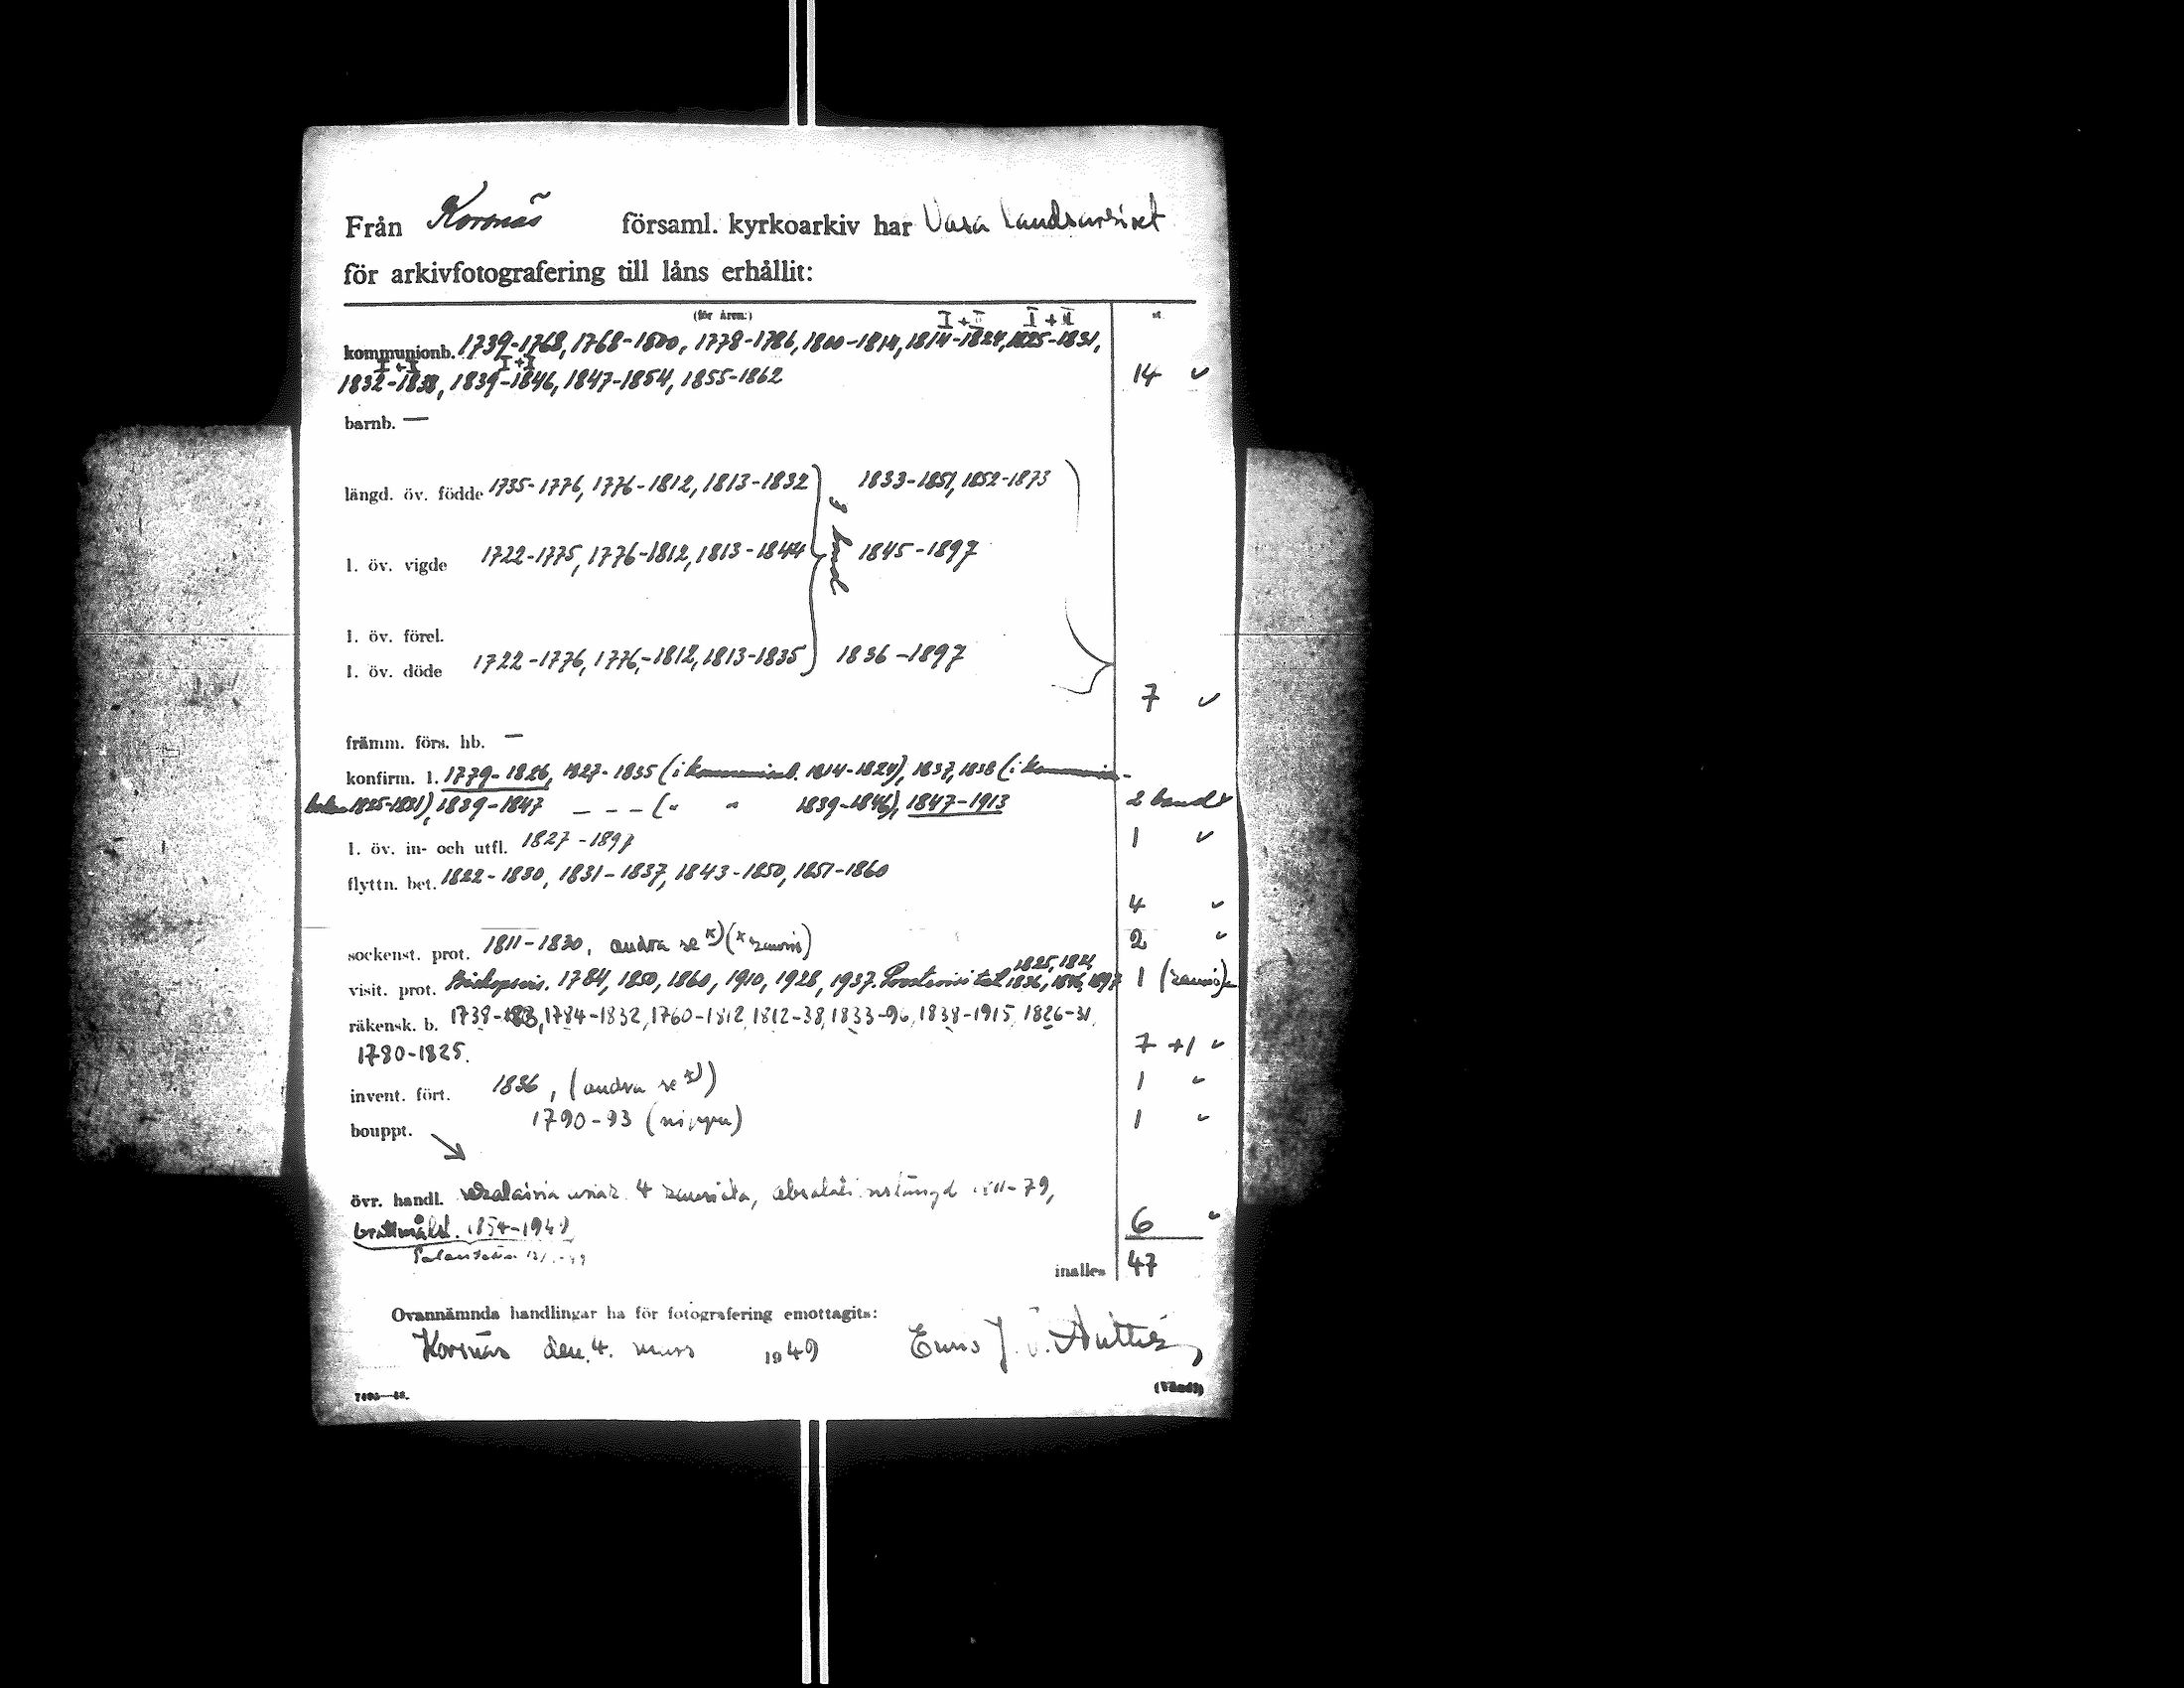 Från Korsnäs församl. kyrkoarkiv har Vasa landsarkivet
för arkivfotografering till låns erhållit:
(för åren:) I + II I + II st
kommunionb. 1739-1768, 1768-1800, 1778-1786, 1800-1814, 1814-1824, 1825-1831,
I + II I + II
1832-1838, 1839-1846, 1847-1854, 1855-1862 14 ✓
barnb. —
längd. öv. födde 1735-1776, 1776-1812, 1813-1832 1833-1851, 1852-1873
3 band
l. öv. vigde 1722-1775, 1776-1812, 1813-1844 1845-1897
l. öv. förel.
l. öv. döde 1722-1776, 1776-1812, 1813-1835 1836-1897
7 ✓
främm. förs. hb. —
konfirm. l. 1779-1826, 1827-1835 (i kommunionb. 1814-1824), 1837, 1838 (i kommunion-
boken 1825-1831), 1839-1847 — — — (" " 1839-1846), 1847-1913 2 band ✓
l. öv. in- och utfl. 1827-1897 1 ✓
flyttn. bet. 1822-1830, 1831-1837, 1843-1850, 1851-1860
4 ✓
sockenst. prot. 1811-1830, andra se x) 2 ✓
1825, 1821,
visit. prot. Biskopsvis. 1784, 1850, 1860, 1910, 1928, 1937. 1836, 1846, 1897 1
räkensk. b. 1784-1832, 1760-1812, 1812-38, 1833-96, 1838-1915, 1826-31,
1780-1825. 7 +1 ✓
invent. fört. 1836, (andra se x)) 1 ✓
bouppt. 1790-93 1 ✓
övr. handl. 4 -79,
1854-194 6 ✓
inalles 47
Ovannämnda handlingar ha för fotografering emottagits:
Korsnäs den 4. mars 1949
7495—48. (Vänd!)